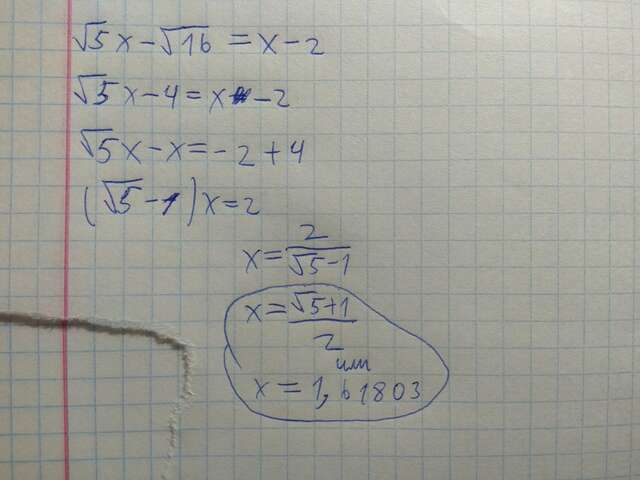 √5x-√16=x-2
√5x-4=x-2
√5x-x=-2+4
(√5-1)x=2
x=2/(√5-1)
x=(√5+1)/2
или
x=1,61803